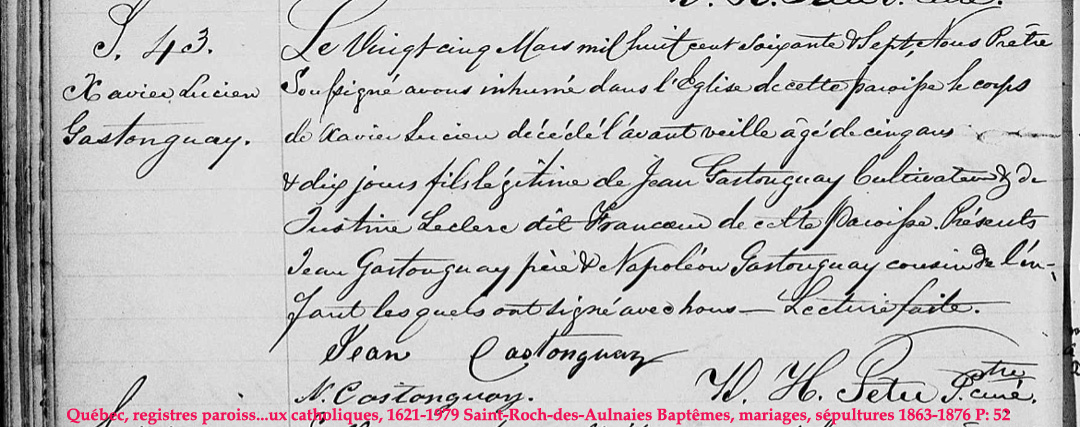 S. 43.
Xavier Lucien
Gastonguay.
Le Vingt cinq Mars mil huit cent soixante & Sept, Nous Prêtre
Soussigné avons inhumé dans l'Eglise de cette paroisse le corps
de Xavier Lucien décédé l'avant veille âgé de cinq ans
& dix jours fils légitime de Jean Gastonguay Cultivateur & de
Justine Leclerc dit Francœur de cette Paroisse. Présents
Jean Gastonguay père & Napoléon Gastonguay cousin de l'en-
fant lesquels ont signé avec nous — Lecture faite.
Jean Castonguay
N. Castonguay.
H. Ptre
P. curé.
Québec, registres paroiss...ux catholiques, 1621-1979 Saint-Roch-des-Aulnaies Baptêmes, mariages, sépultures 1863-1876 P: 52